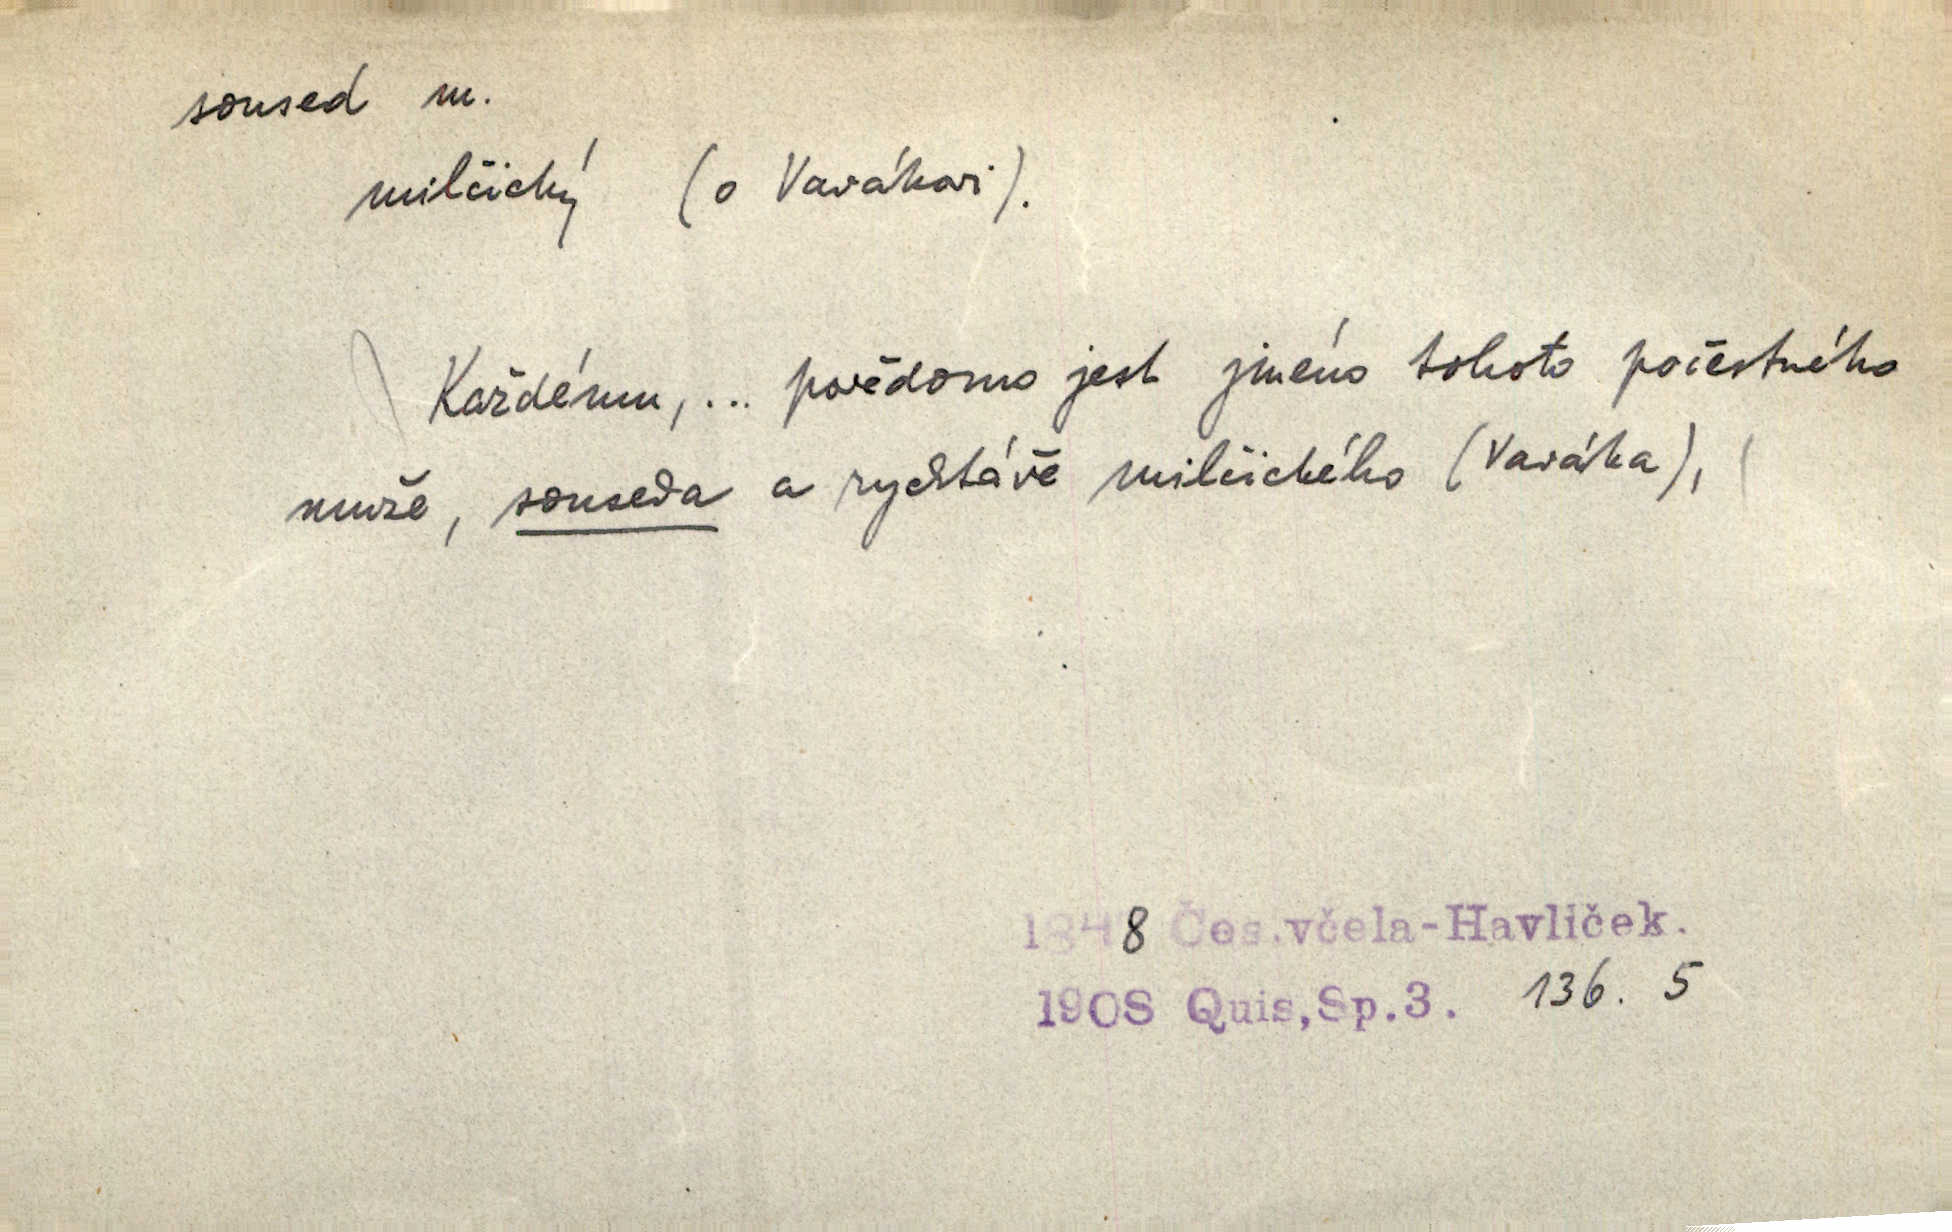 soused m.
milčický (o Vavákovi).
Každému, ... povědomo jest jméno tohoto počestného
muže, souseda a rychtáře milčického (Vaváka),
1848 Čes.včela-Havlíček.
1908 Quis,Sp.3. 136. 5